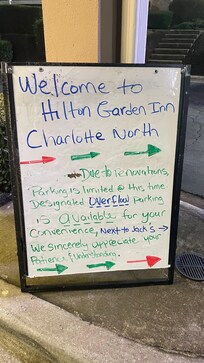 Welcome to
Hilton Garden Inn
Charlotte North
Due to renovations,
Parking is limited @ this time
Designated overflow parking
is available for your
Convenience, Next to Jack's →
We sincerely appreciate your
Patience & Understanding.